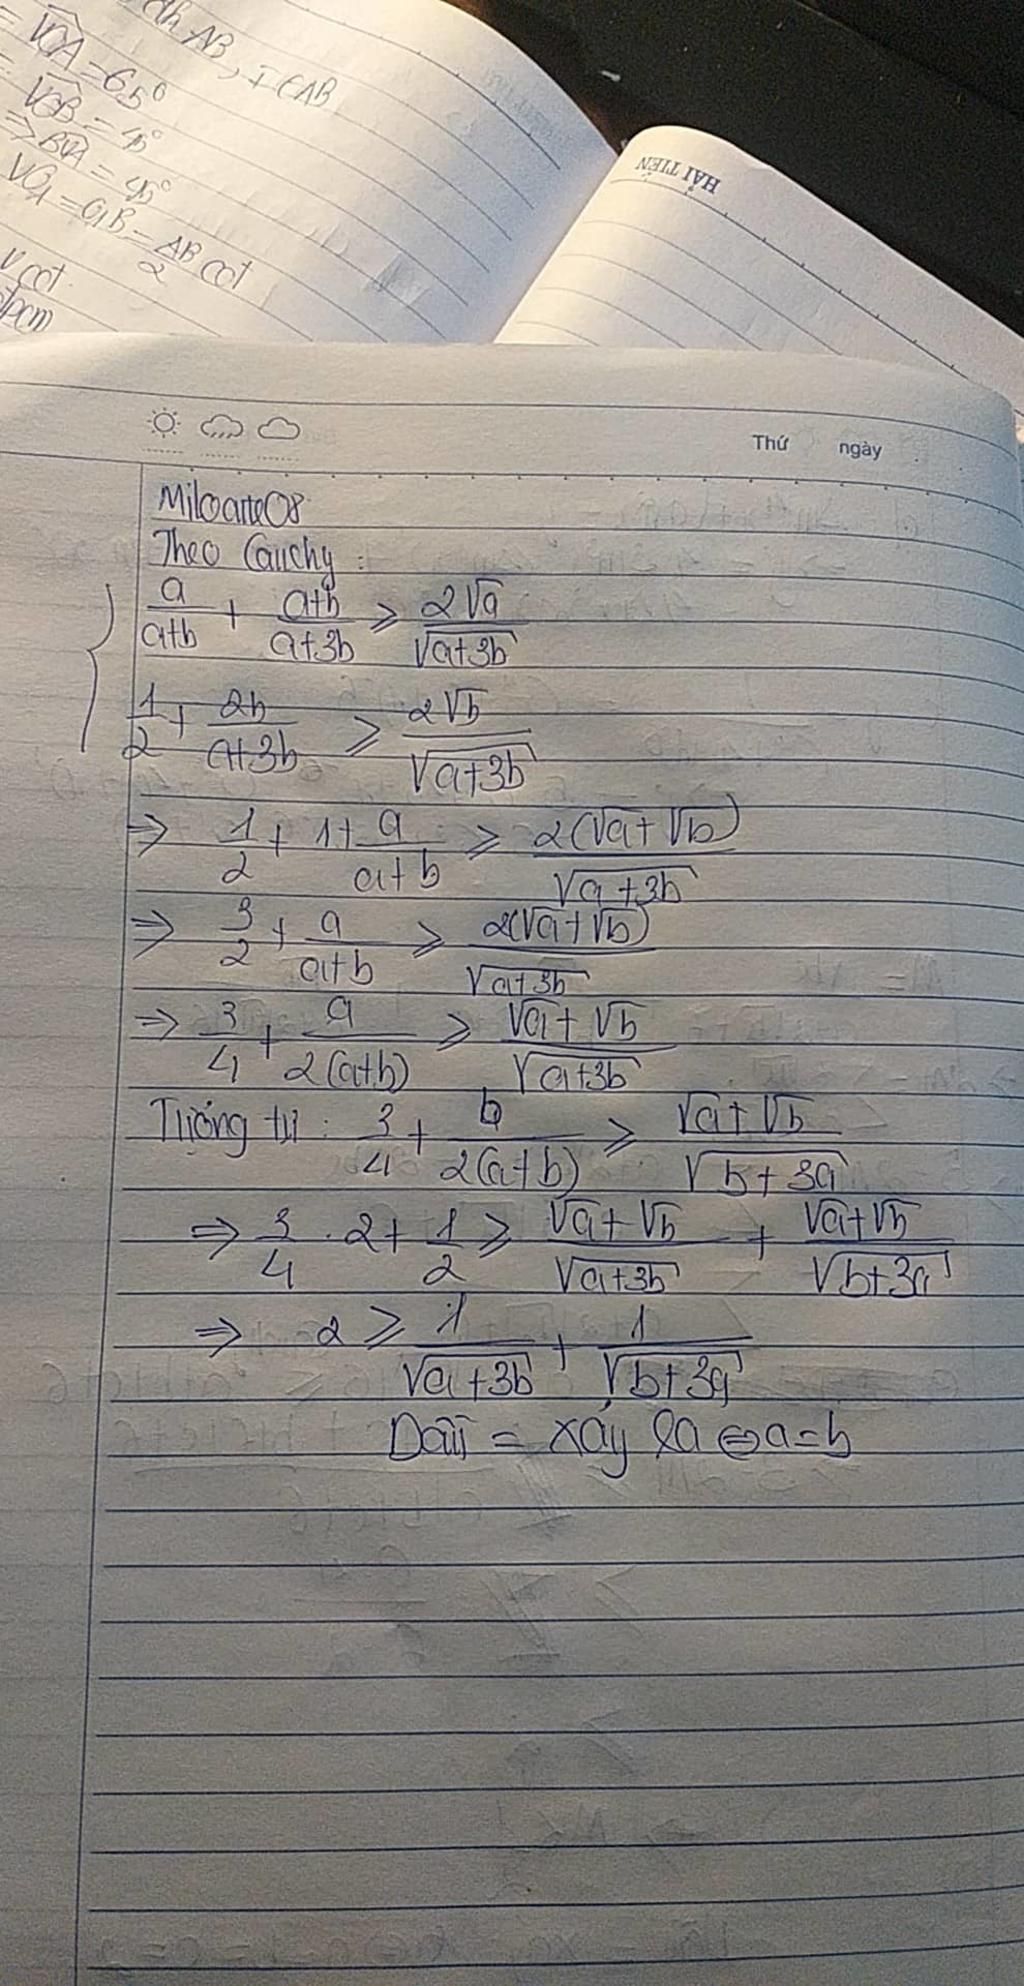 = VOA = 65°
= VOB = 45°
AB, I ∈ AB
HẢI TIẾN
Thứ ngày
Miloarte08
Theo Cauchy :
a/(a+b) + (a+b)/(a+3b) ≥ 2√a/√(a+3b)
1/2 + 2b/(a+3b) ≥ 2√b/√(a+3b)
⇒ 1/2 + 1 + a/(a+b) ≥ 2(√a+√b)/√(a+3b)
⇒ 3/2 + a/(a+b) ≥ 2(√a+√b)/√(a+3b)
⇒ 3/4 + a/2(a+b) ≥ (√a+√b)/√(a+3b)
Tương tự : 3/4 + b/2(a+b) ≥ (√a+√b)/√(b+3a)
⇒ 3/4 . 2 + 1/2 ≥ (√a+√b)/√(a+3b) + (√a+√b)/√(b+3a)
⇒ 2 ≥ 1/√(a+3b) + 1/√(b+3a)
Dấu = xảy ra ⇔ a=b